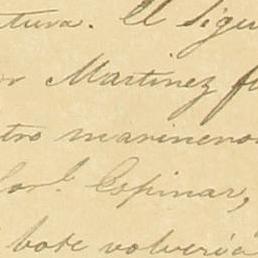 tura. El sigu
or Martinez f
tro marineros
Cor.l Espinar,
bote volveria